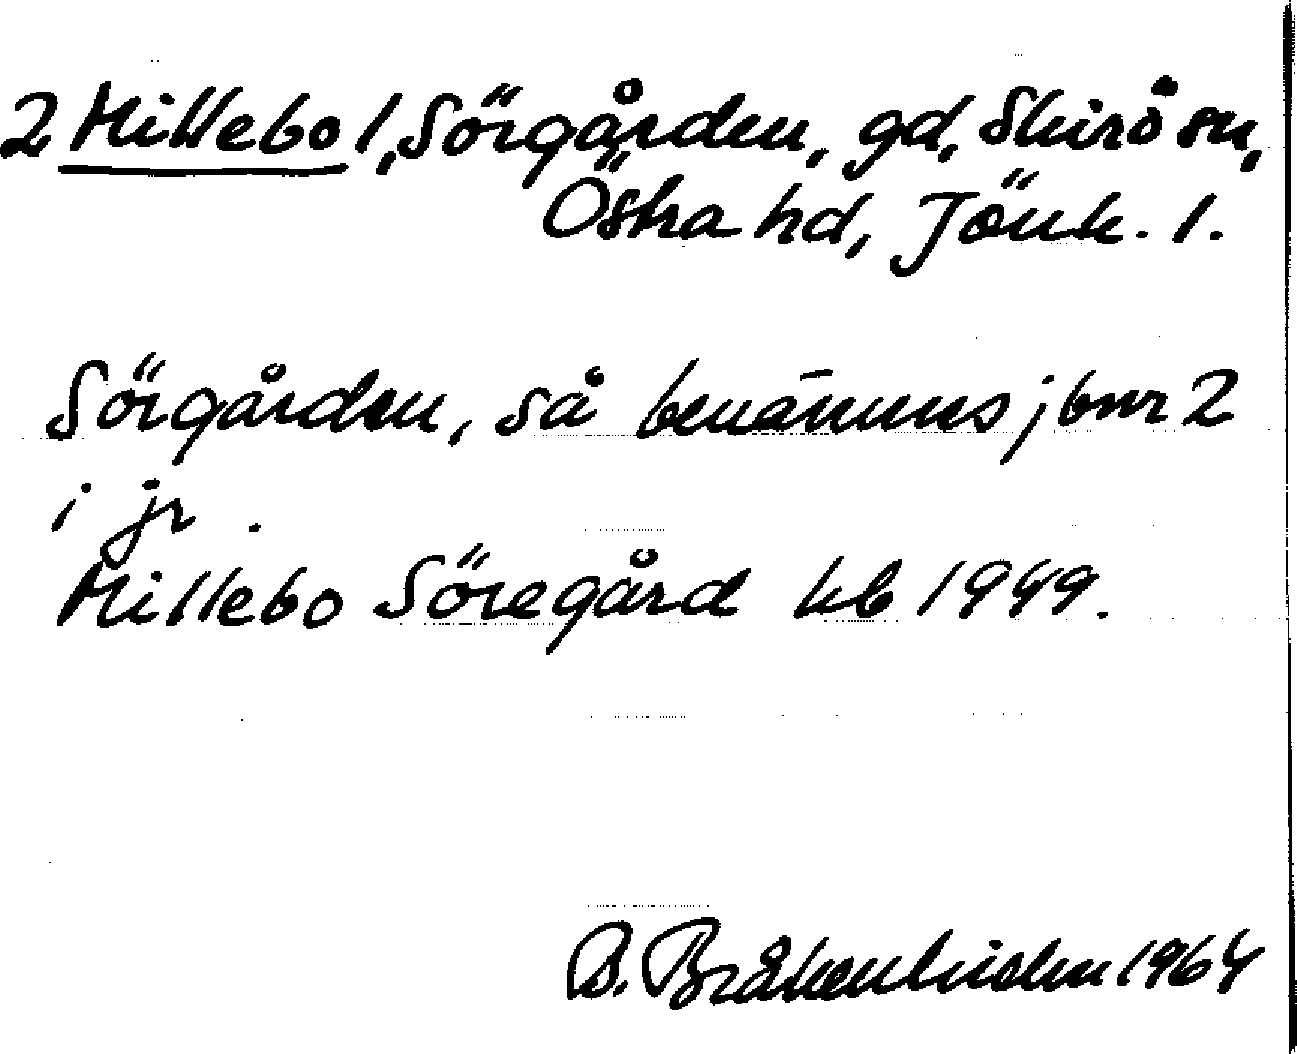 2 Hillebo 1, Sörgården, gd, Skirö sn,
Östra hd, Jönk. l.
Sörgården, så benämnes jbnr 2
i jr.
Hillebo Söregård kb 1949.
B.
1964